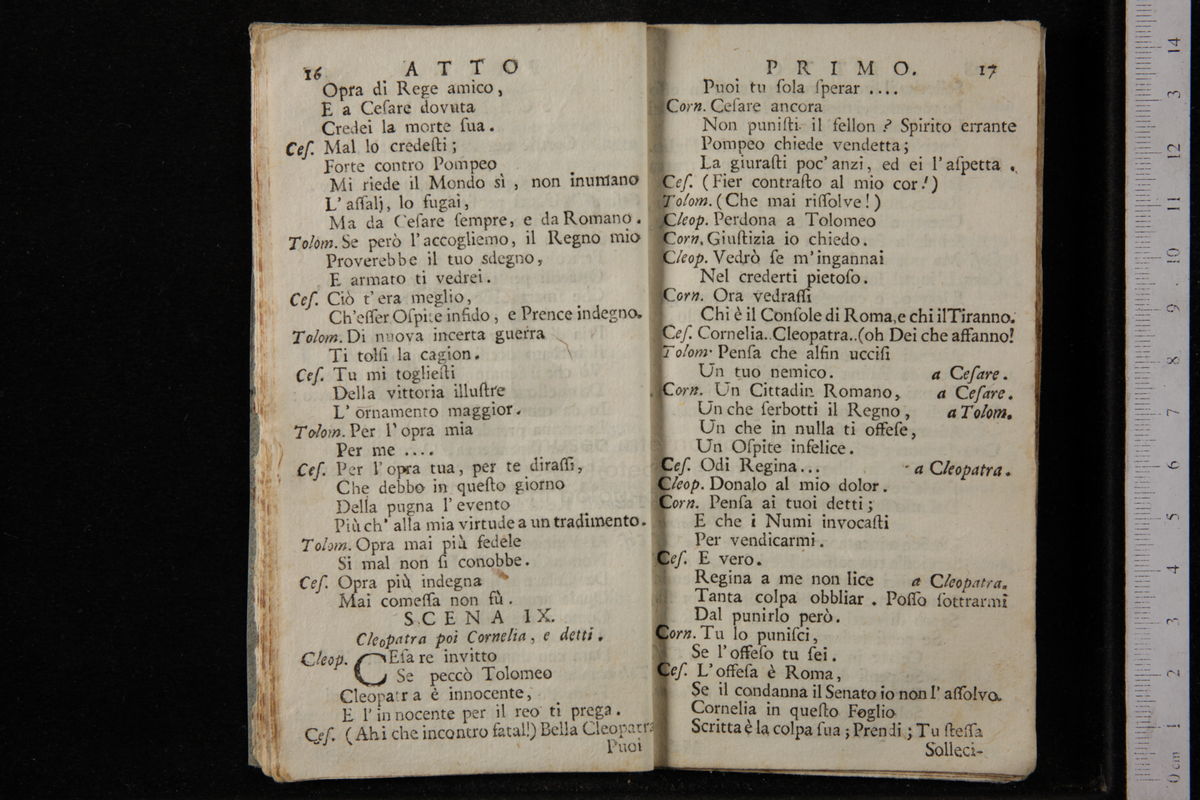 16 ATTO
Opra di Rege amico,
E a Ceſare dovuta
Credei la morte ſua.
Ceſ. Mal lo credeſti;
Forte contro Pompeo
Mi riede il Mondo sì, non inumano
L' aſſalj, lo fugai,
Ma da Ceſare ſempre, e da Romano.
Tolom. Se però l'accogliemo, il Regno mio
Proverebbe il tuo sdegno,
E armato ti vedrei.
Ceſ. Ciò t'era meglio,
Ch'eſſer Oſpite infido, e Prence indegno.
Tolom. Di nuova incerta guerra
Ti tolſi la cagion.
Ceſ. Tu mi toglieſti
Della vittoria illuſtre
L' ornamento maggior.
Tolom. Per l'opra mia
Per me ....
Ceſ. Per l'opra tua, per te diraſſi,
Che debbo in queſto giorno
Della pugna l'evento
Più ch' alla mia virtude a un tradimento.
Tolom. Opra mai più fedele
Si mal non ſi conobbe.
Ceſ. Opra più indegna
Mai comeſſa non fù.
SCENA IX.
Cleopatra poi Cornelia, e detti.
Cleop. CEſare invitto
Se peccò Tolomeo
Cleopatra è innocente,
E l'innocente per il reo ti prega.
Ceſ. (Ahi che incontro fatal!) Bella Cleopatra
Puoi
PRIMO. 17
Puoi tu ſola ſperar ....
Corn. Ceſare ancora
Non puniſti il fellon? Spirito errante
Pompeo chiede vendetta;
La giuraſti poc'anzi, ed ei l'aſpetta.
Ceſ. (Fier contraſto al mio cor!)
Tolom. (Che mai riſſolve!)
Cleop. Perdona a Tolomeo
Corn. Giuſtizia io chiedo.
Cleop. Vedrò ſe m'ingannai
Nel crederti pietoſo.
Corn. Ora vedraſſi
Chi è il Conſole di Roma, e chi il Tiranno.
Ceſ. Cornelia..Cleopatra..(oh Dei che affanno!
Tolom. Penſa che alfin ucciſi
Un tuo nemico. a Ceſare.
Corn. Un Cittadin Romano, a Ceſare.
Un che ſerbotti il Regno, a Tolom.
Un che in nulla ti offeſe,
Un Oſpite infelice.
Ceſ. Odi Regina... a Cleopatra.
Cleop. Donalo al mio dolor.
Corn. Penſa ai tuoi detti;
E che i Numi invocaſti
Per vendicarmi.
Ceſ. E vero.
Regina a me non lice a Cleopatra.
Tanta colpa obbliar. Poſſo ſottrarmi
Dal punirlo però.
Corn. Tu lo puniſci,
Se l'offeſo tu ſei.
Ceſ. L'offeſa è Roma,
Se il condanna il Senato io non l'aſſolvo.
Cornelia in queſto Foglio
Scritta è la colpa ſua; Prendi; Tu ſteſſa
Solleci-
14
13
12
11
10
9
8
7
6
5
4
3
2
1
0 cm